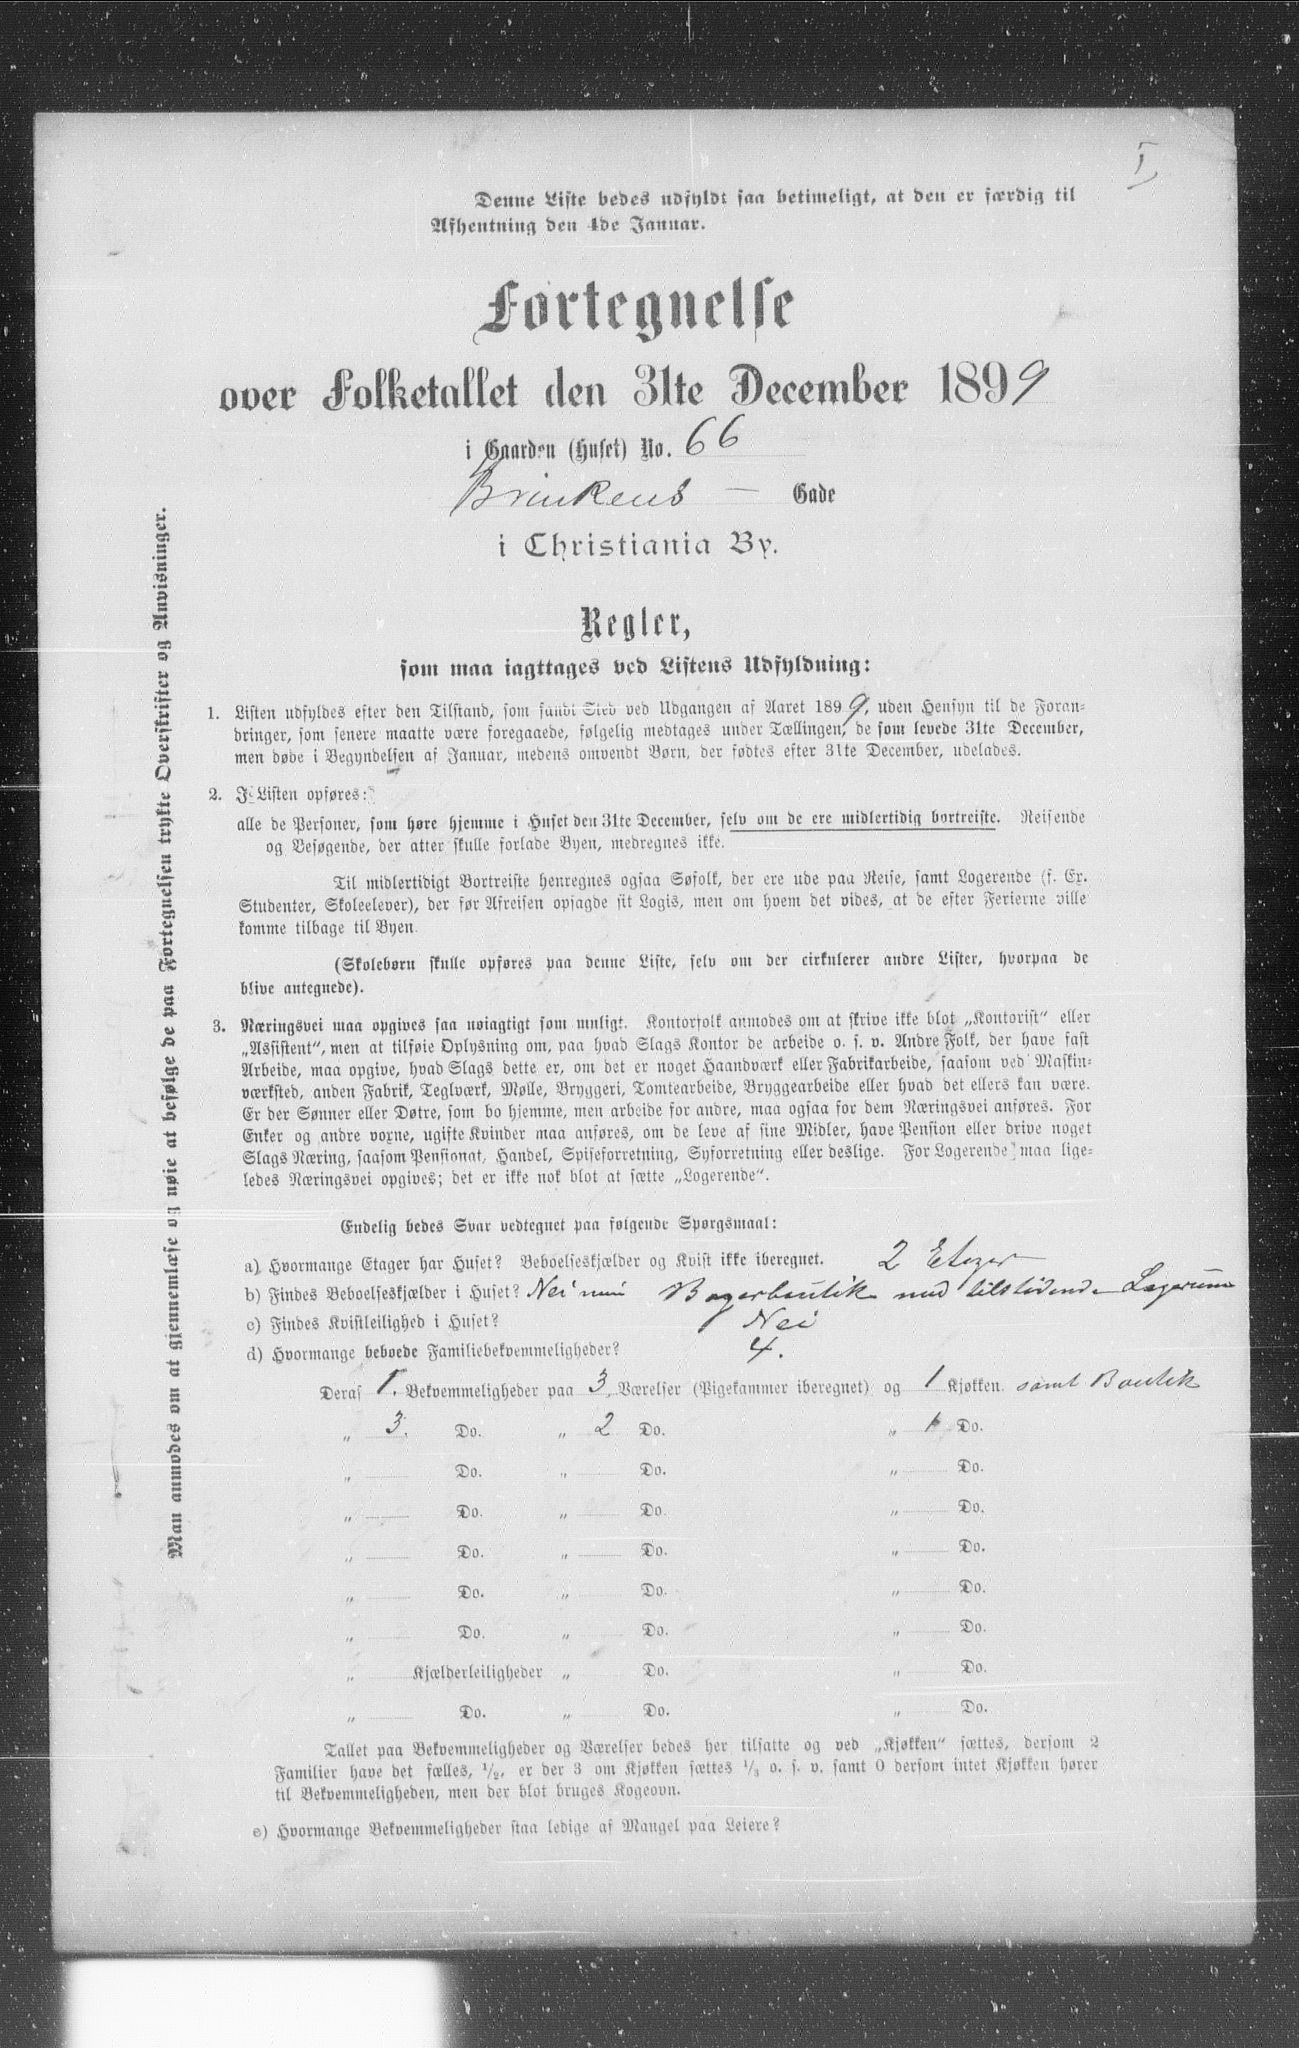 I,
Denne Liste bedes udfyldt saa betimeligt, at den er færdig til
Afhentning den 4de Januar.
Fortegnelse
over Folketallet den 31te December 1899
i Gaarden (Huset) No. 66
Brinkens — Gade
i Christiania By.
Regler,
som maa iagttages ved Listens Udfyldning:
1. Listen udfyldes efter den Tilstand, som fandt Sted ved Udgangen af Aaret 1899, uden Hensyn til de Foran-
dringer, som senere maatte være foregaaede, følgelig medtages under Tællingen, de som levede 31te December,
men døde i Begyndelsen af Januar, medens omvendt Børn, der fødtes efter 31te December, udelades.
2. I Listen opføres:
alle de Personer, som høre hjemme i Huset den 31te December, selv om de ere midlertidig bortreiste. Reisende
og Besøgende, der atter skulle forlade Byen, medregnes ikke.
Til midlertidigt Bortreiste henregnes ogsaa Søfolk, der ere ude paa Reise, samt Logerende (f. Ex.
Studenter, Skoleelever), der før Afreisen opsagde sit Logis, men om hvem det vides, at de efter Ferierne ville
komme tilbage til Byen.
(Skolebørn skulle opføres paa denne Liste, selv om der cirkulerer andre Lister, hvorpaa de
blive antegnede).
3. Næringsvei maa opgives saa nøiagtigt som muligt. Kontorfolk anmodes om at skrive ikke blot „Kontorist“ eller
„Assistent“, men at tilføie Oplysning om, paa hvad Slags Kontor de arbeide o. s. v. Andre Folk, der have fast
Arbeide, maa opgive, hvad Slags dette er, om det er noget Haandværk eller Fabrikarbeide, saasom ved Maskin-
værksted, anden Fabrik, Teglværk, Mølle, Bryggeri, Tomtearbeide, Bryggearbeide eller hvad det ellers kan være.
Er der Sønner eller Døtre, som bo hjemme, men arbeide for andre, maa ogsaa for dem Næringsvei anføres. For
Enker og andre voxne, ugifte Kvinder maa anføres, om de leve af sine Midler, have Pension eller drive noget
Slags Næring, saasom Pensionat, Handel, Spiseforretning, Syforretning eller deslige. For Logerende maa lige-
ledes Næringsvei opgives; det er ikke nok blot at sætte „Logerende“.
Endelig bedes Svar vedtegnet paa følgende Spørgsmaal:
a) Hvormange Etager har Huset? Beboelseskjælder og Kvist ikke iberegnet. 2 Etager
b) Findes Beboelseskjælder i Huset? Nei men Bagerboutik med tilstødende Lagerum
c) Findes Kvistleilighed i Huset? Nei
d) Hvormange beboede Familiebekvemmeligheder? 4.
Deraf 1. Bekvemmeligheder paa 3 Værelser (Pigekammer iberegnet) og 1 Kjøkken. samt Boutik
„ 3. Do. „ 2 Do. „ 1 Do.
„ Do. „ Do. „ Do.
„ Do. „ Do. „ Do.
„ Do. „ Do. „ Do.
„ Do. „ Do. „ Do.
„ Do. „ Do. „ Do.
„ Kjælderleiligheder „ Do. „ Do.
„ Do. „ Do. „ Do.
Tallet paa Bekvemmeligheder og Værelser bedes her tilsatte og ved „Kjøkken“ sættes, dersom 2
Familier have det fælles, 1/2, er der 3 om Kjøkken sættes 1/3 o. s. v. samt 0 dersom intet Kjøkken hører
til Bekvemmeligheden, men der blot bruges Kogeovn.
e) Hvormange Bekvemmeligheder staa ledige af Mangel paa Leiere?
Man anmodes om at gjennemlæse og nøie at befølge de paa Fortegnelsen trykte Overskrifter og Anvisninger.